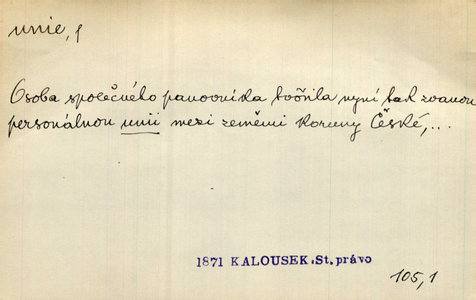 unie, f
Osoba společného panovníka tvořila nyní tak zvanou
personálnou unii mezi zeměmi Koruny České,...
1871 KALOUSEK.St.právo
105,1